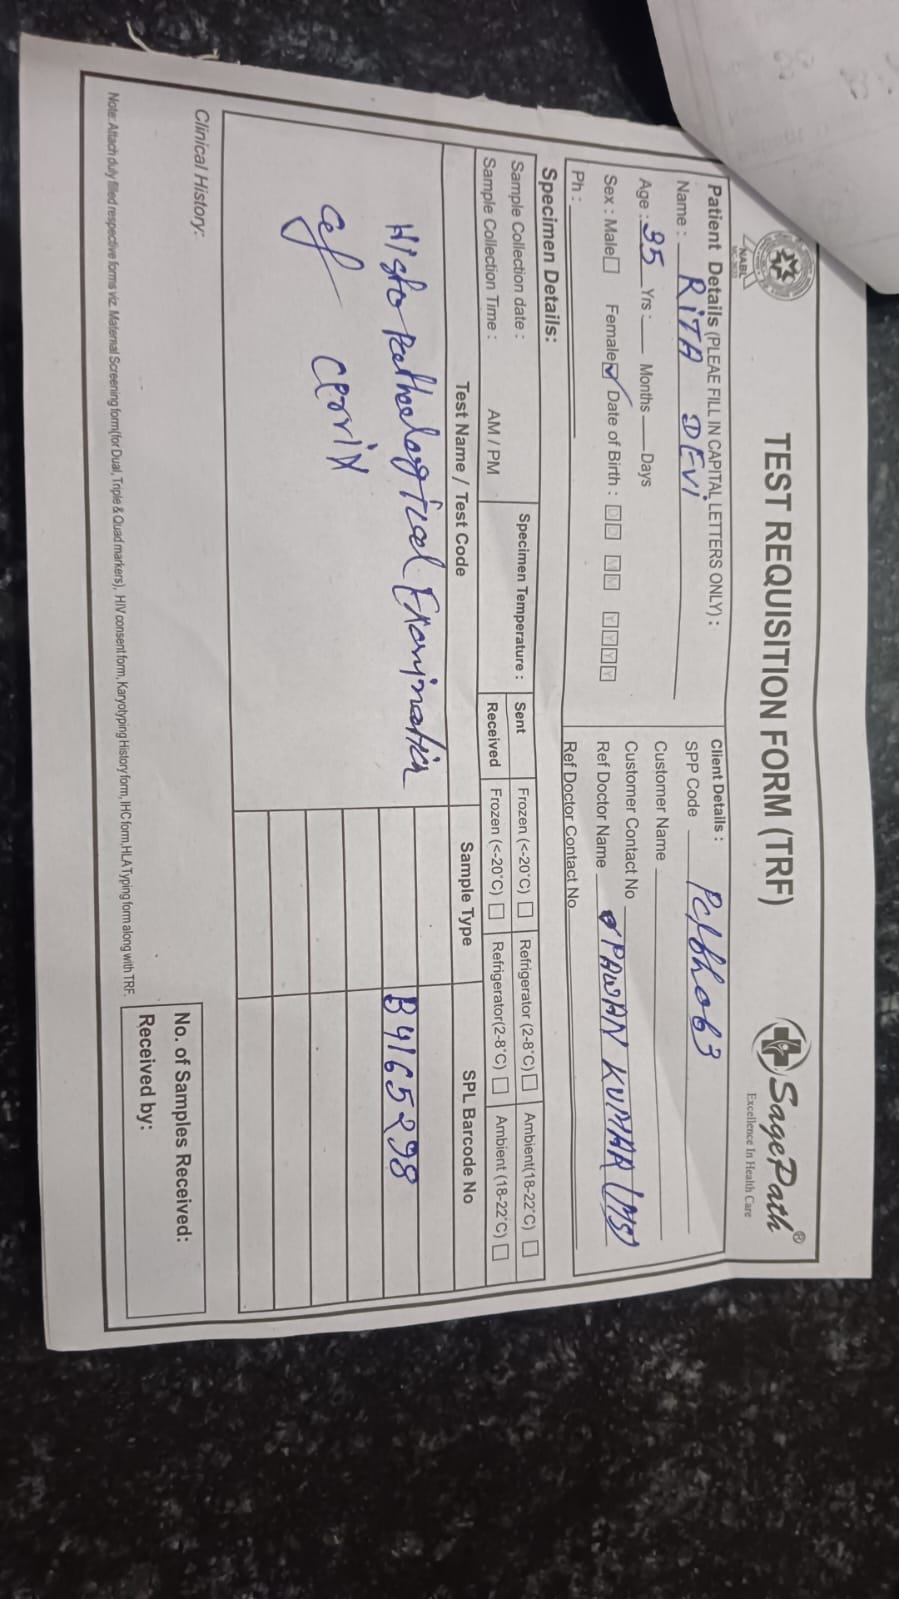 TEST REQUISITION FORM (TRF)
NABL
SagePath®
Excellence In Health Care
Patient Details (PLEAE FILL IN CAPITAL LETTERS ONLY) :
Name : RITA DEVI
Age : 35 Yrs : Months Days
Sex : Male☐ Female☑ Date of Birth : D M M Y Y Y Y
Ph :
Client Details :
SPP Code
Customer Name
Customer Contact No
Ref Doctor Name PAWAN KUMAR (MS)
Ref Doctor Contact No
Specimen Details:
Sample Collection date :
Sample Collection Time : AM / PM
Specimen Temperature :
Sent Frozen (<-20°C) ☐ Refrigerator (2-8°C) ☐ Ambient(18-22°C) ☐
Received Frozen (<-20°C) ☐ Refrigerator(2-8°C) ☐ Ambient (18-22°C) ☐
Test Name / Test Code Sample Type SPL Barcode No
Histo Pathological Examination B4165298
Clinical History:
No. of Samples Received:
Received by:
Note: Attach duly filled respective forms viz. Maternal Screening form(for Dual, Triple & Quad markers), HIV consent form, Karyotyping History form, IHC form,HLA Typing form along with TRF.